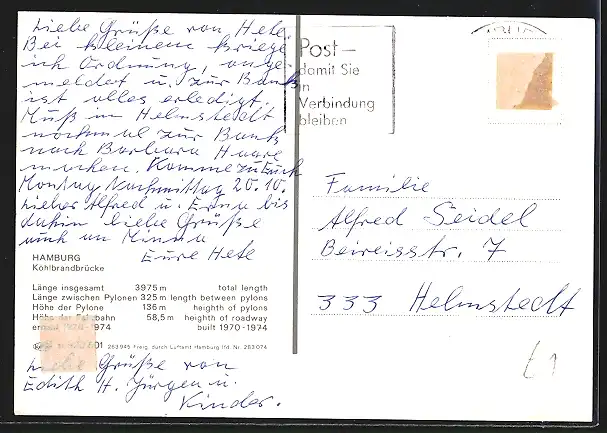 Liebe Grüße von Hete.
Bei kleinem kriege
ich Ordnung, ange-
meldet u. zur Bank
ist alles erledigt.
Muß in Helmstedt
nochmal zur Bank
nach Barbara Haare
machen. Komme zu Euch
Montag Nachmittag 20.10.
Lieber Alfred u. Erna bis
dahin liebe Grüße
auch an Minna
Eure Hete
HAMBURG
Köhlbrandbrücke
Länge insgesamt 3975 m total length
Länge zwischen Pylonen 325 m length between pylons
Höhe der Pylone 136 m heighth of pylons
Höhe der Fahrbahn 58,5 m heighth of roadway
erbaut 1970-1974 built 1970-1974
263945 Freig. durch Luftamt Hamburg lfd. Nr. 263 074
Liebe Grüße von
Edith H. Jürgen u.
Kinder.
Post –
damit Sie
in
Verbindung
bleiben
Familie
Alfred Seidel
Beireisstr. 7
333 Helmstedt